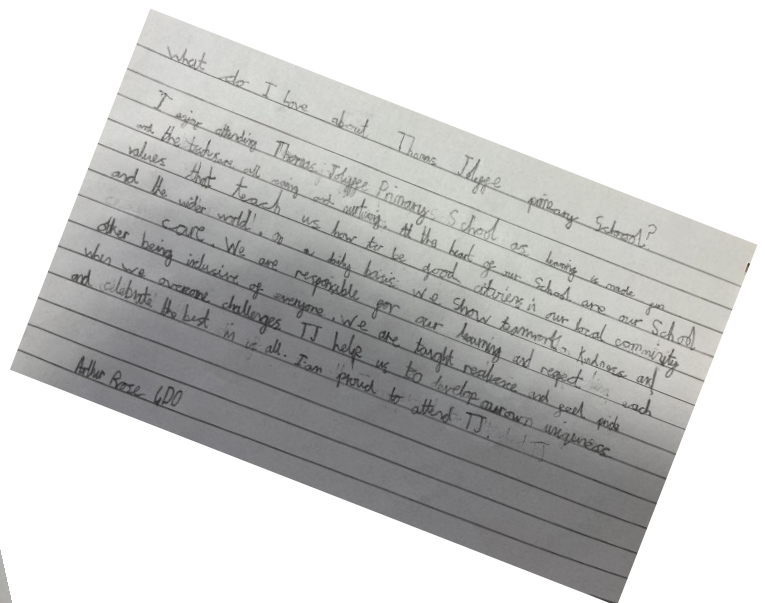 What do I love about Thomas Jolyffe primary School?
I enjoy attending Thomas Jolyffe Primary School as learning is made fun
and the teachers are all caring and nurturing. At the heart of our School are our School
values that teach us how to be good citizens in our local community
and the wider world'. On a daily basic we show teamwork, kindness and
care. We are responsible for our learning and respect each
other being inclusive of everyone. We are taught resilience and feel pride
when we overcome challenges. TJ help us to develop our own uniqueness
and celebrate the best in us all. I am proud to attend TJ.
Arthur 6DO